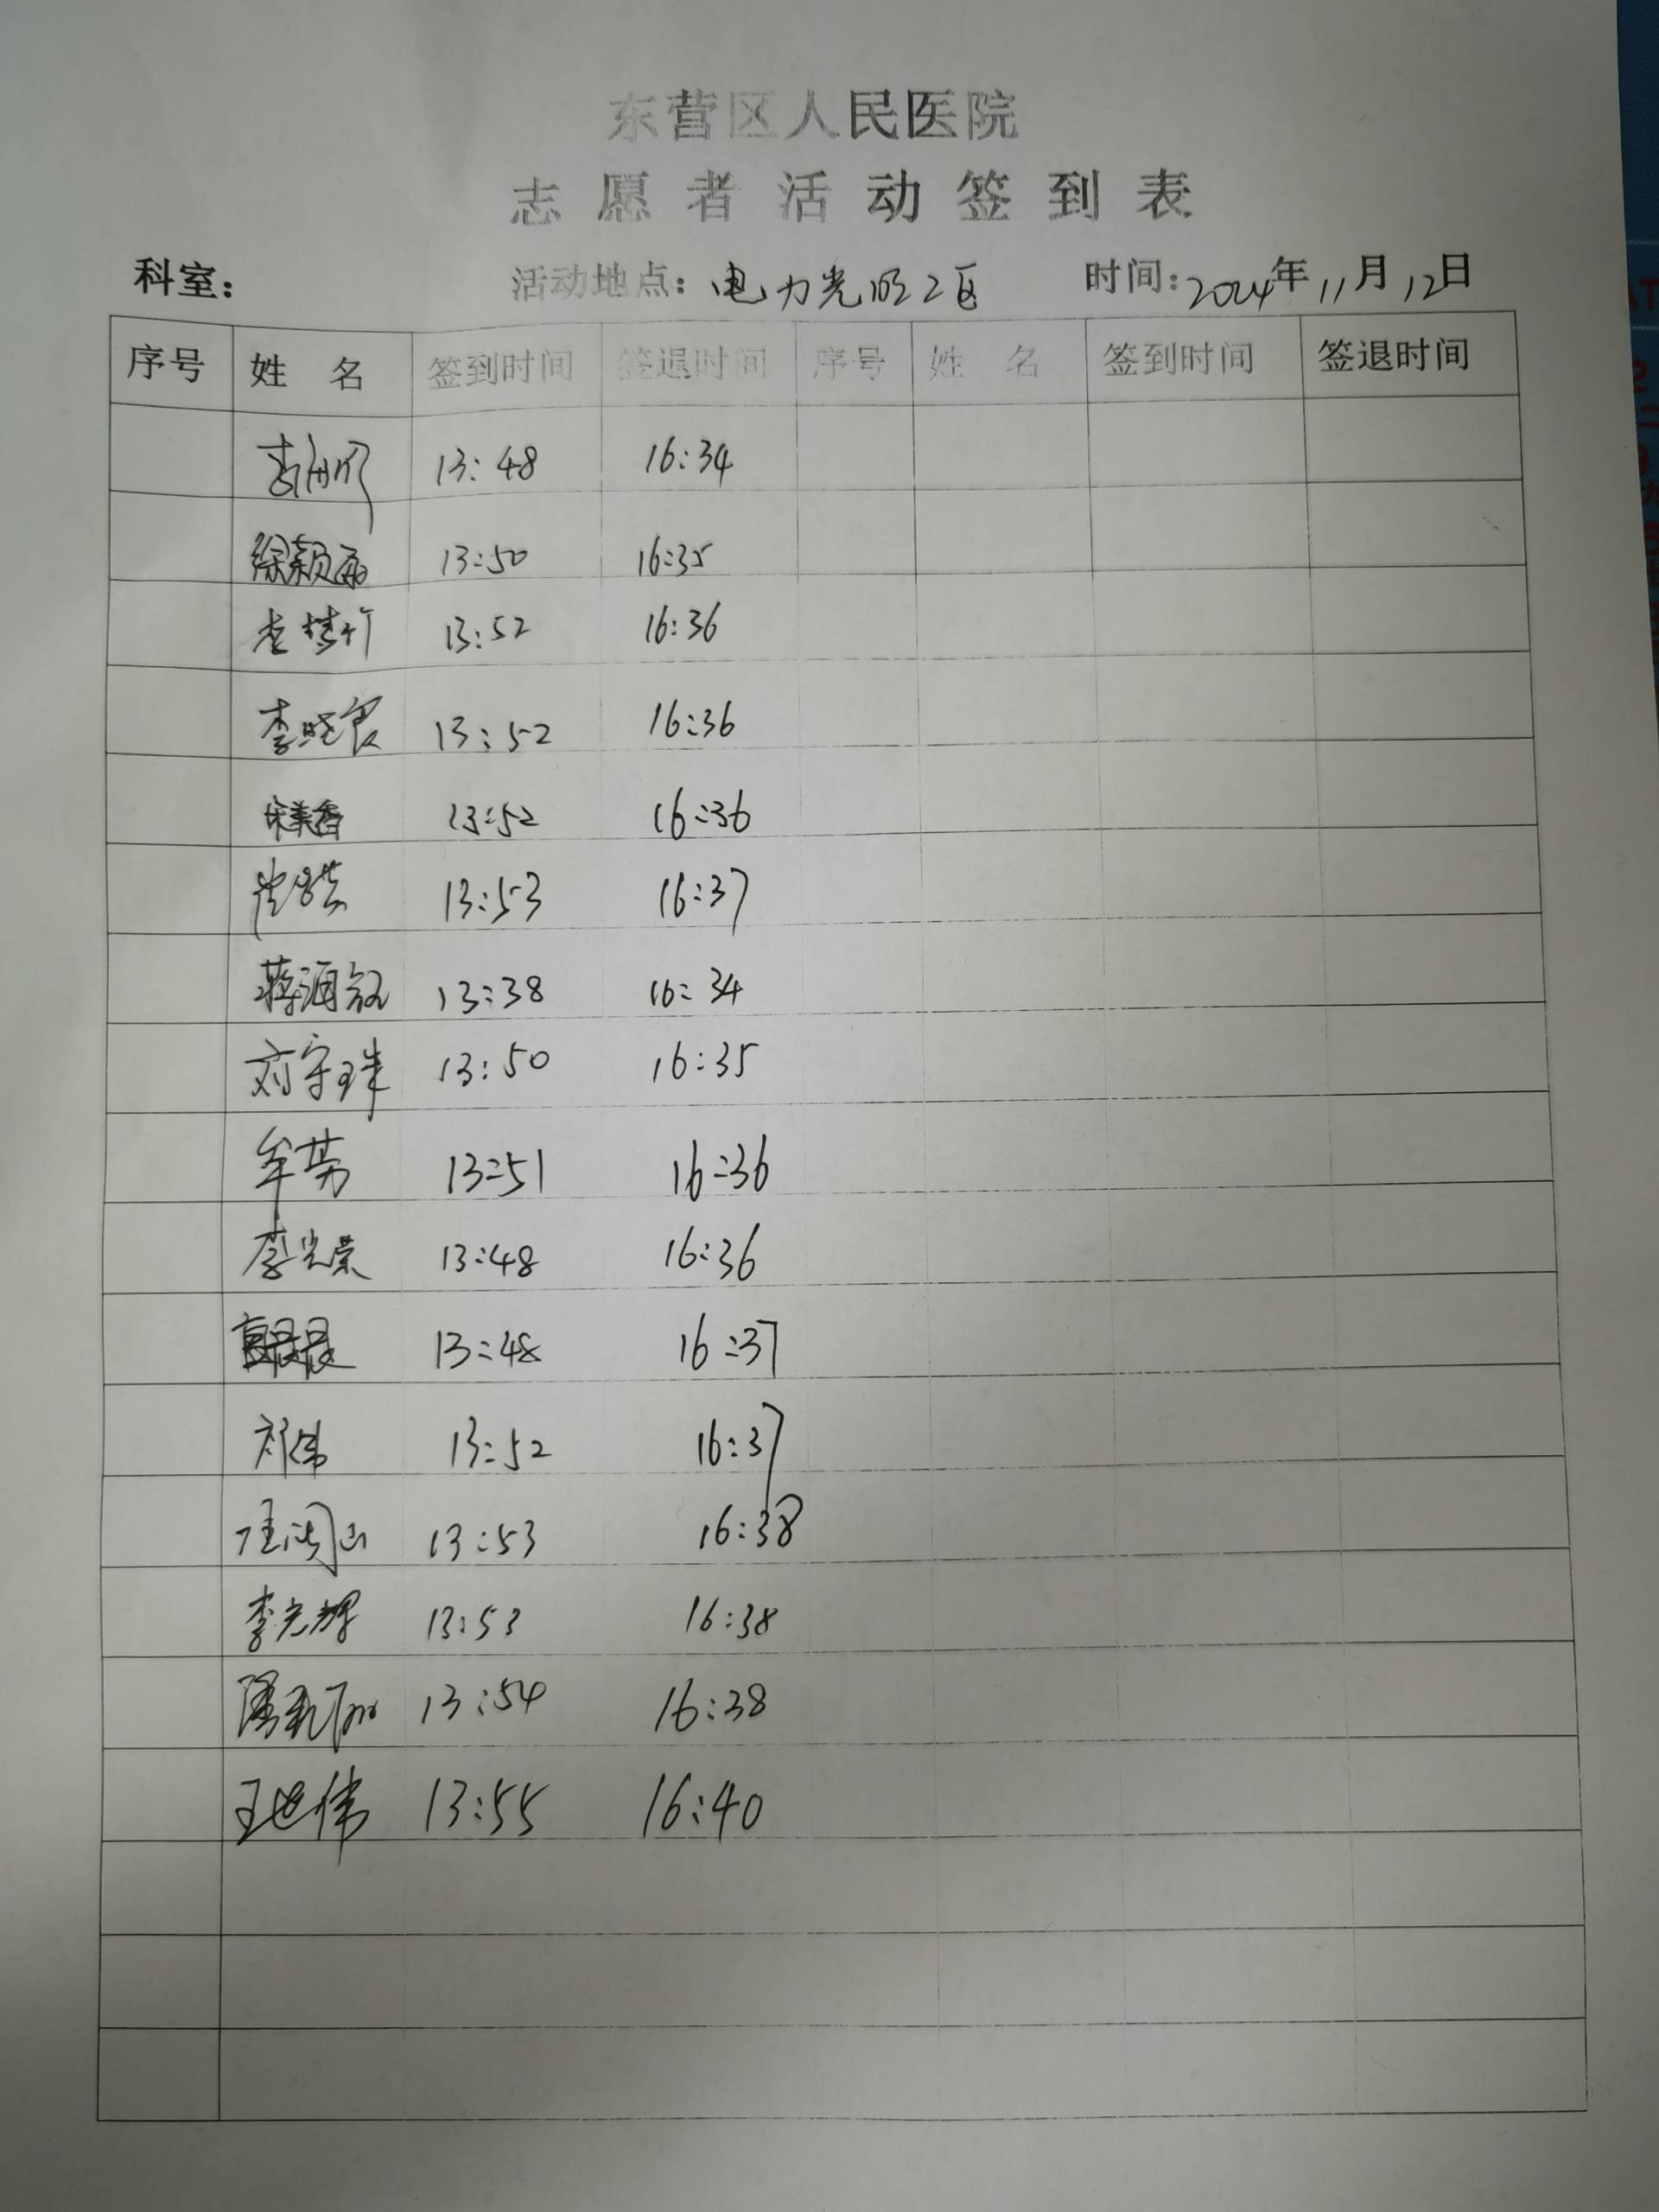 东营区人民医院
志愿者活动签到表
科室： 活动地点：电力光明2区 时间：2024年11月12日
序号 姓名 签到时间 签退时间 序号 姓名 签到时间 签退时间
13:48 16:34
徐颖 13:50 16:35
13:52 16:36
李晓 13:52 16:36
宋美香 13:52 16:36
13:53 16:37
蒋 13:38 16:34
刘守珠 13:50 16:35
牟 13:51 16:36
李光荣 13:48 16:36
13:48 16:37
刘伟 13:52 16:37
13:53 16:38
李光辉 13:53 16:38
13:54 16:38
王世伟 13:55 16:40